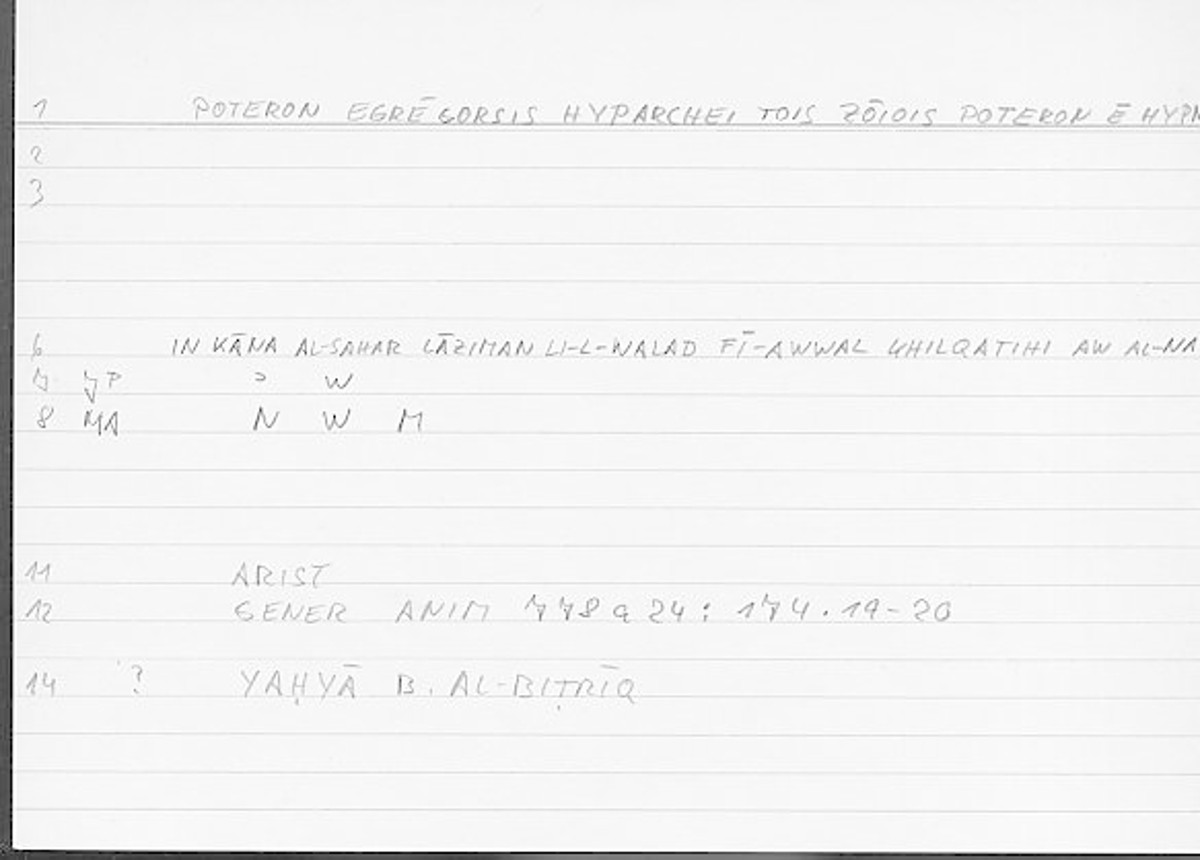 1 POTERON EGRĒGORSIS HYPARCHEI TOIS ZŌIOIS POTERON Ē HYPN
2
3
6 IN KĀNA AL-SAHAR LĀZIMAN LI-L-WALAD FĪ-AWWAL KHILQATIHI AW AL-NA
7 JP ɔ W
8 MA N W M
11 ARIST
12 GENER ANIM 778 a 24 : 174.19-20
14 ? YAḤYĀ B. AL-BIṬRĪQ